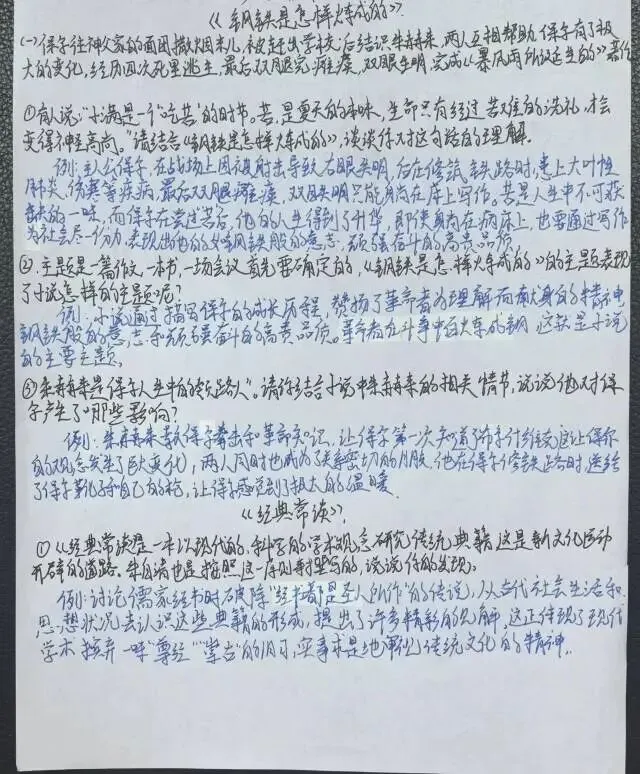 《钢铁是怎样炼成的》:
(一)保尔往神父家的面团撒烟末儿,被赶出学校,后结识朱赫来,两人互相帮助,保尔有了极
大的变化,经历四次死里逃生,最后双腿完瘫痪,双眼失明,完成《暴风雨所诞生的》著作
①有人说:"小满是一个'吃苦'的时节。苦,是夏天的本味,生命只有经过苦难的洗礼,才会
变得神圣高尚。"请结合《钢铁是怎样炼成的》,谈谈你对这句话的理解.
例:主人公保尔,在战场上因被射击导致右眼失明,后在修筑铁路时,患上大叶性
肺炎、伤寒等疾病,最后双腿瘫痪,双目失明只能躺在床上写作。苦是人生中不可或
缺的一味,而保尔在尝过苦后,他的人生得到了升华,即使身尚在病床上,也要通过写作
为社会尽一份力,表现出他的如钢铁般的意志、顽强奋斗的高贵品质
②.主题是一篇作文、一本书、一场会议首先要确定的,《钢铁是怎样炼成的》的主题表现
了小说怎样的主题呢?
例:小说通过描写保尔的成长历程,赞扬了革命者为理解而献身的精神,
钢铁般的意志和顽强奋斗的高贵品质。革命者在斗争中百火炼成钢,这就是小说
的主要主题。
③朱赫来是保尔人生中的"领路人"。请你结合小说中朱赫来的相关情节,说说他对保
尔产生了哪些影响?
例:朱赫来教保尔拳击和革命知识,让保尔第一次知道了布尔什维克,这让保尔
的观念发生了巨大变化,两人同时也成为了亲密切的朋友.他在保尔修铁路时,送给
了保尔靴子和自己的枪,让保尔感觉到了极大的温暖.
《经典常谈》:
①《经典常谈》是一本以现代的、科学的学术观念研究传统典籍,这是新文化运动
开辟的道路。朱自清也是按照这一原则来撰写的,说说你的发现。
例:讨论儒家经书时破除"经书皆圣人所作"的传说,从古代社会生活和
思想状况去认识这些典籍的形成,提出了许多精彩的见解,这正体现了现代
学术摈弃一味"尊经""崇古"的旧习,实事求是地审视传统文化的精神.